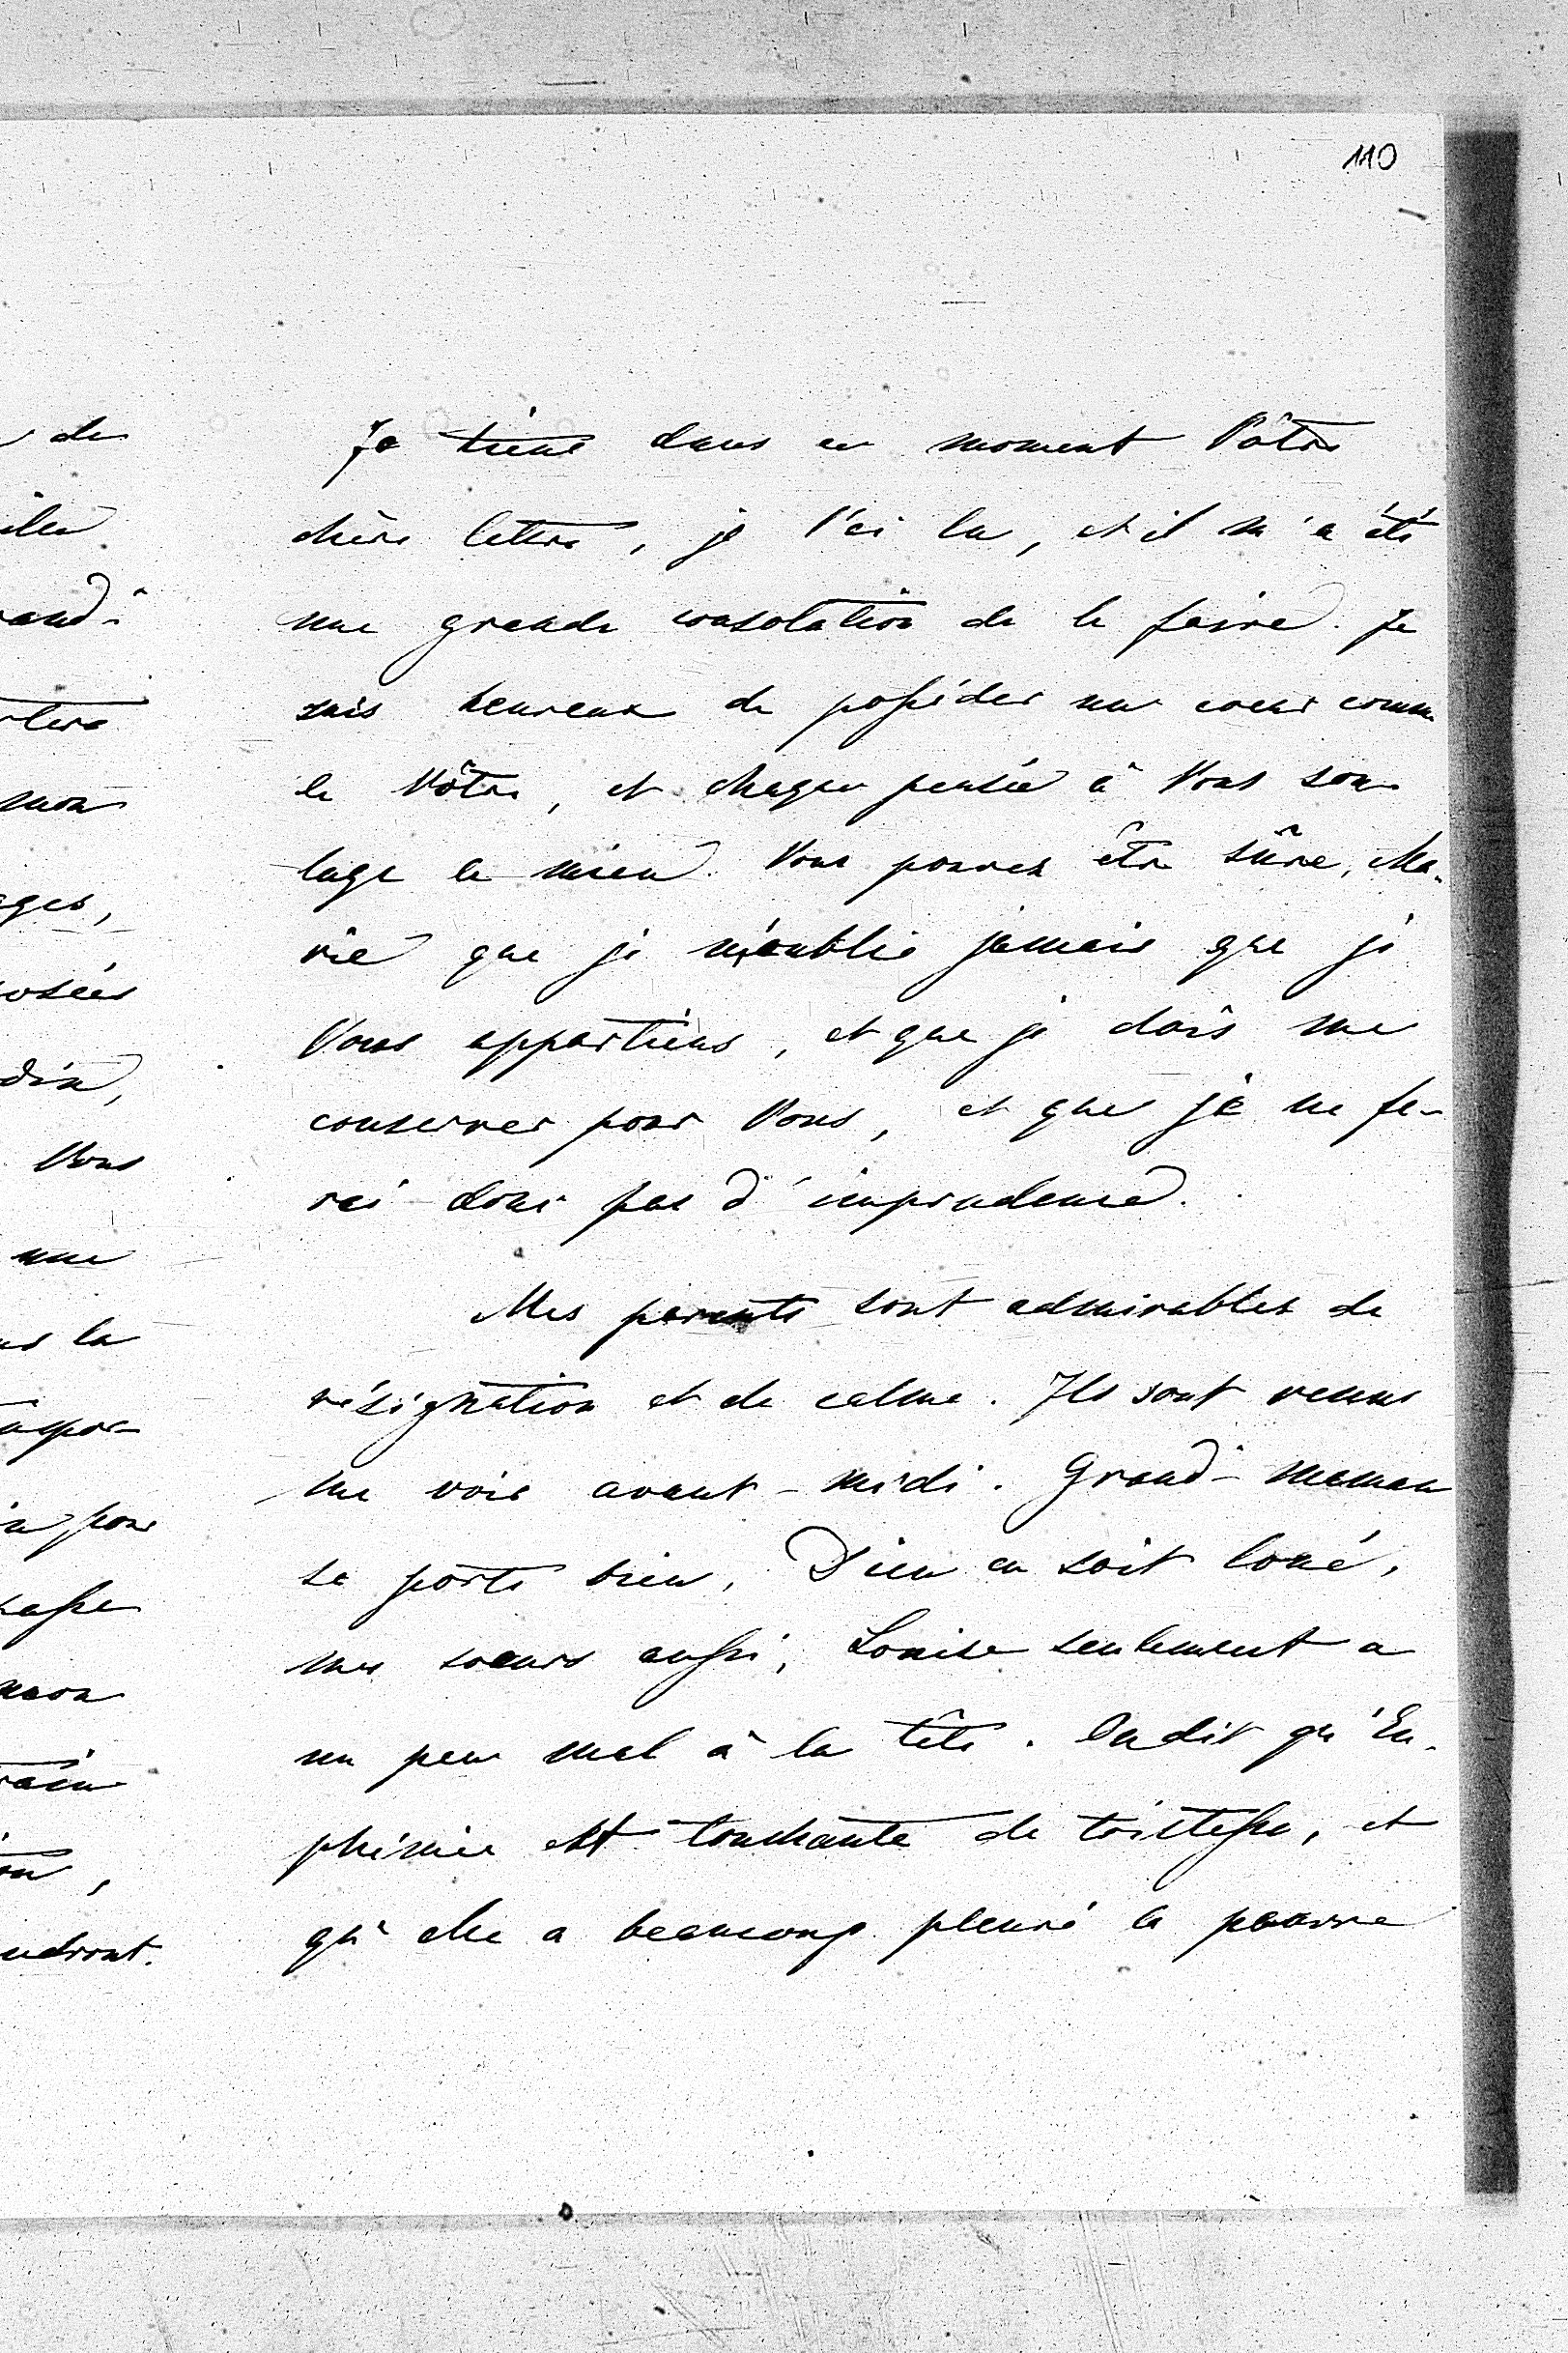 110
Je tiens dans ce moment Vôtre
chère lettre, je l'ai lu, et il m'a été
une grande consolation de le faire. Je
suis heureux de posséder un coeur comme
le Vôtre, et chaque pensée à Vous sou-
lage le mien. Vous pouvez être sûre, Ma-
rie que je n'oublie jamais que je
Vous appartiens, et que je dois me
conserver pour Vous, et que je ne fe-
rai donc pas d'imprudence.
Mes parents sont admirables de
résignation et de calme. Ils sont venus
me voir avant-midi. Grand-maman
se porte bien, Dieu en soit loué,
mes soeurs aussi, Louise seulement a
un peu mal à la tête. On dit qu'Eu-
phémie est touchante de tristesse, et
qu'elle a beaucoup pleuré le pauvre
de
and-
mon
ages,
osées
Vous
une
la
pour
mon
udront.